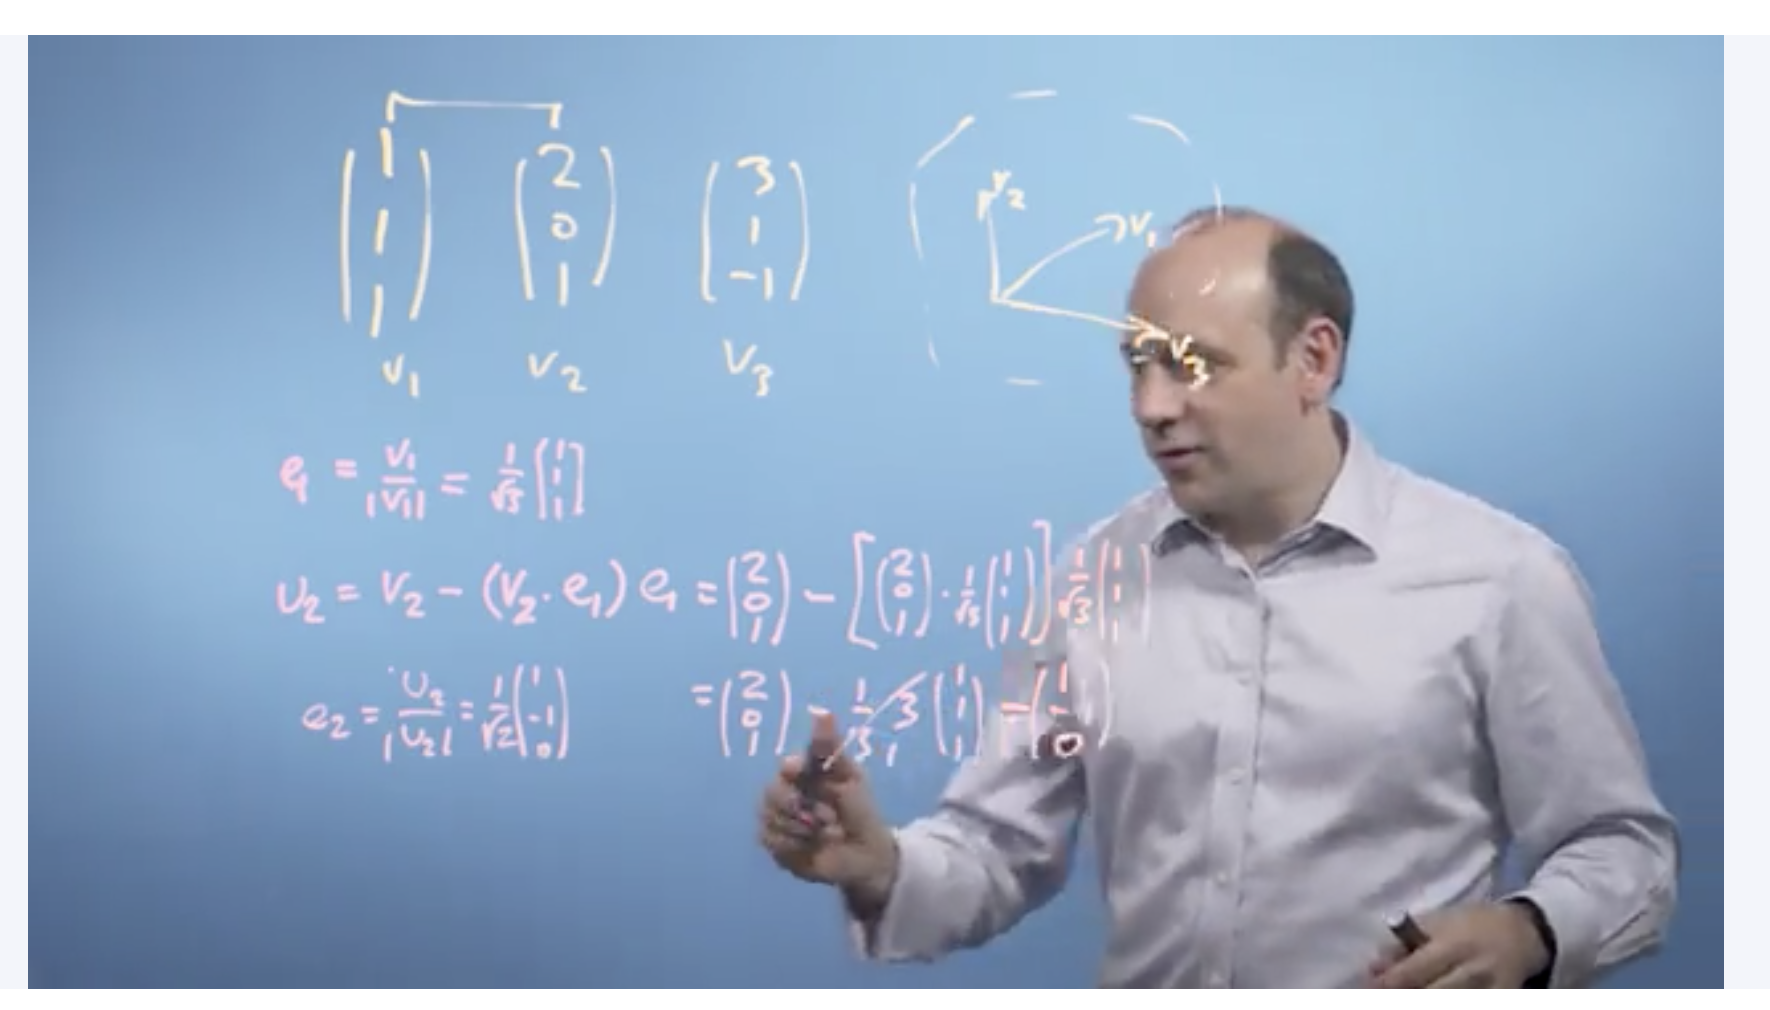 (1 1 1) (2 0 1) (3 1 -1)
v₁ v₂ v₃
v₂
v₁
v₃
e₁ = v₁/|v₁| = 1/√3 [1 1 1]
u₂ = v₂ - (v₂·e₁) e₁ = (2 0 1) - [(2 0 1) · 1/√3 (1 1 1)] 1/√3 (1 1 1)
e₂ = u₂/|u₂| = 1/√2 (1 -1 0) = (2 0 1) - 1/3 3 (1 1 1) = (1 -1 0)